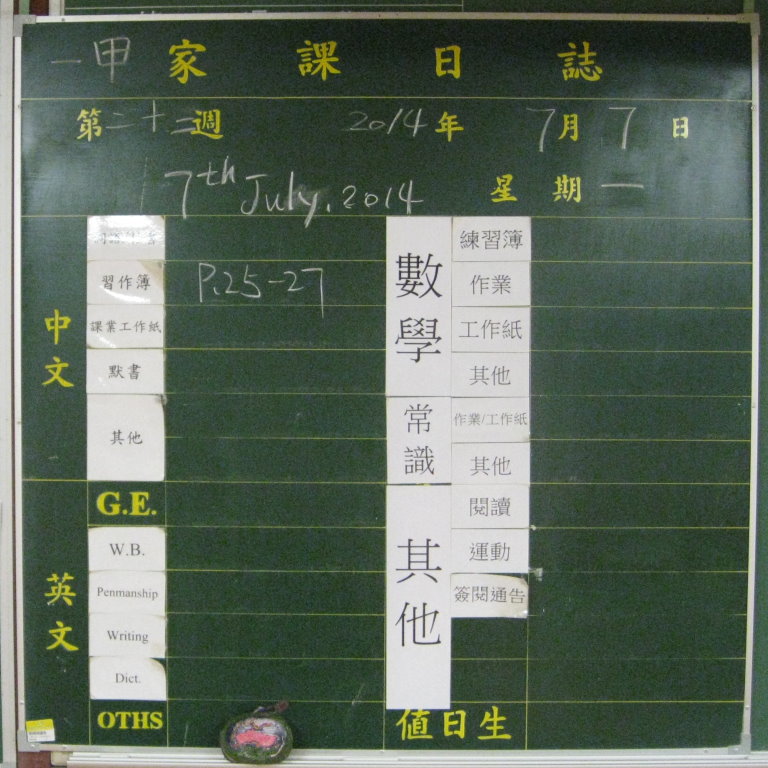 一甲 家課日誌
第二十三週 2014年 7月7日
17th July, 2014 星期一
中文
習作簿 P.25-27
課業工作紙
默書
其他
英文
G.E.
W.B.
Penmanship
Writing
Dict.
OTHS
數學
練習簿
作業
工作紙
其他
常識
作業/工作紙
其他
其他
閱讀
運動
簽閱通告
值日生